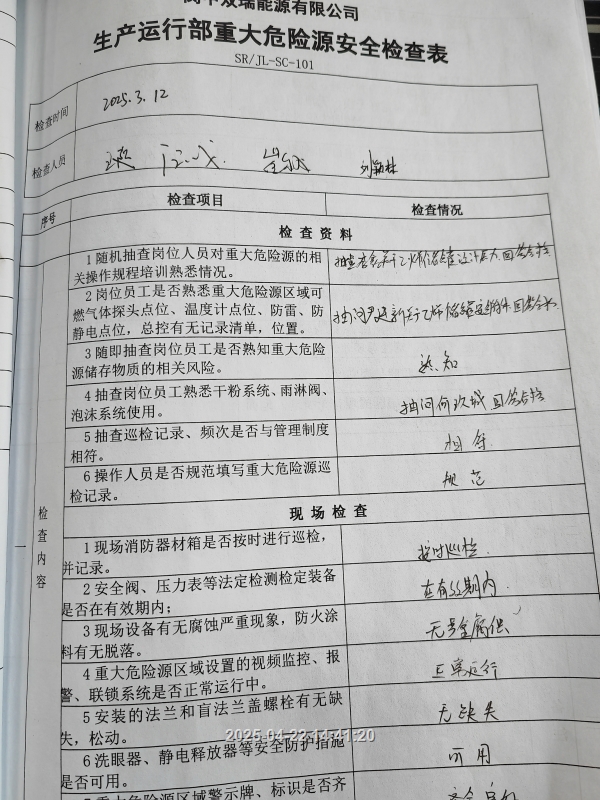 双瑞能源有限公司
生产运行部重大危险源安全检查表
SR/JL-SC-101
检查时间
2025.3.12
检查人员
序号
检查项目
检查情况
检查资料
1 随机抽查岗位人员对重大危险源的相
关操作规程培训熟悉情况。
2 岗位员工是否熟悉重大危险源区域可
燃气体探头点位、温度计点位、防雷、防
静电点位，总控有无记录清单，位置。
3 随即抽查岗位员工是否熟知重大危险
源储存物质的相关风险。
熟知
4 抽查岗位员工熟悉干粉系统、雨淋阀、
泡沫系统使用。
抽问何玖城 回答合格
5 抽查巡检记录、频次是否与管理制度
相符。
相符
6 操作人员是否规范填写重大危险源巡
检记录。
规范
检查内容
现场检查
1 现场消防器材箱是否按时进行巡检，
并记录。
按时巡检.
2 安全阀、压力表等法定检测检定装备
是否在有效期内；
在有效期内.
3 现场设备有无腐蚀严重现象，防火涂
料有无脱落。
4 重大危险源区域设置的视频监控、报
警、联锁系统是否正常运行中。
正常运行
5 安装的法兰和盲法兰盖螺栓有无缺
失，松动。
无缺失
6 洗眼器、静电释放器等安全防护措施
是否可用。
可用
重大危险源区域警示牌、标识是否齐
2025-04-22 14:41:20